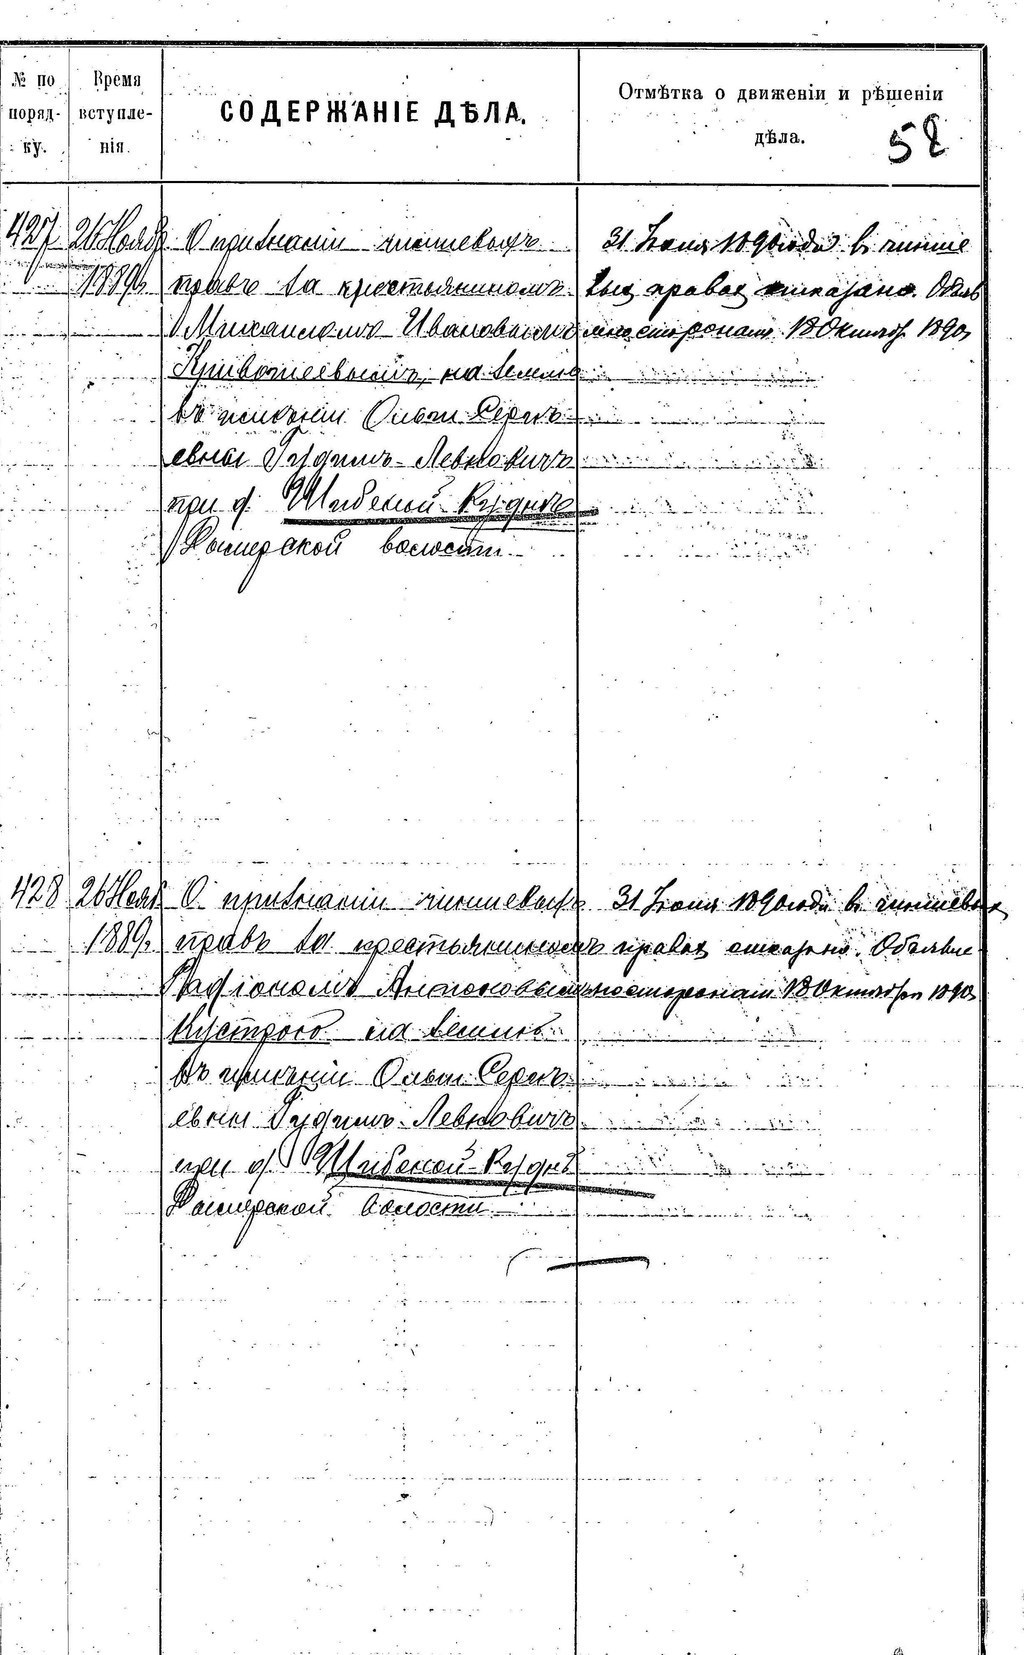 № по
поряд-
ку.
Время
вступле-
нія.
СОДЕРЖАНІЕ ДѢЛА.
Отмѣтка о движеніи и рѣшеніи
дѣла.
58
427
26 Нояб
1889г.
О признаніи чиншевыхъ
правъ за крестьяниномъ
Михаиломъ Ивановымъ
на землю
въ имѣніи Ольги Сергѣ
евны Гудимъ-Левковичъ
при д. Шибеной-Руднѣ
Дымерской волости
31 1890 года въ чинше
выхъ правахъ отказано. Объяв
лено сторонамъ 18 Октябр. 1890г
428
26 Нояб
1889г.
О признаніи чиншевыхъ
правъ за крестьяниномъ
Радіономъ Антоновымъ
Кустрою на землю
въ имѣніи Ольги Сергѣ
евны Гудимъ-Левковичъ
при д. Шибеной-Руднѣ
Дымерской волости
31 1890 года въ чиншевыхъ
правахъ отказано. Объявле
но сторонамъ 18 Октября 1890г